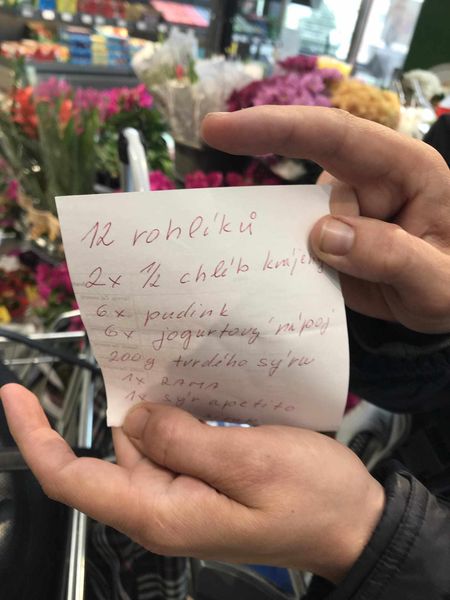 12 rohlíků
2x 1/2 chléb krájený
6x pudink
6x jogurtový nápoj
200g tvrdého sýru
1x RAMA
1x sýr apetito